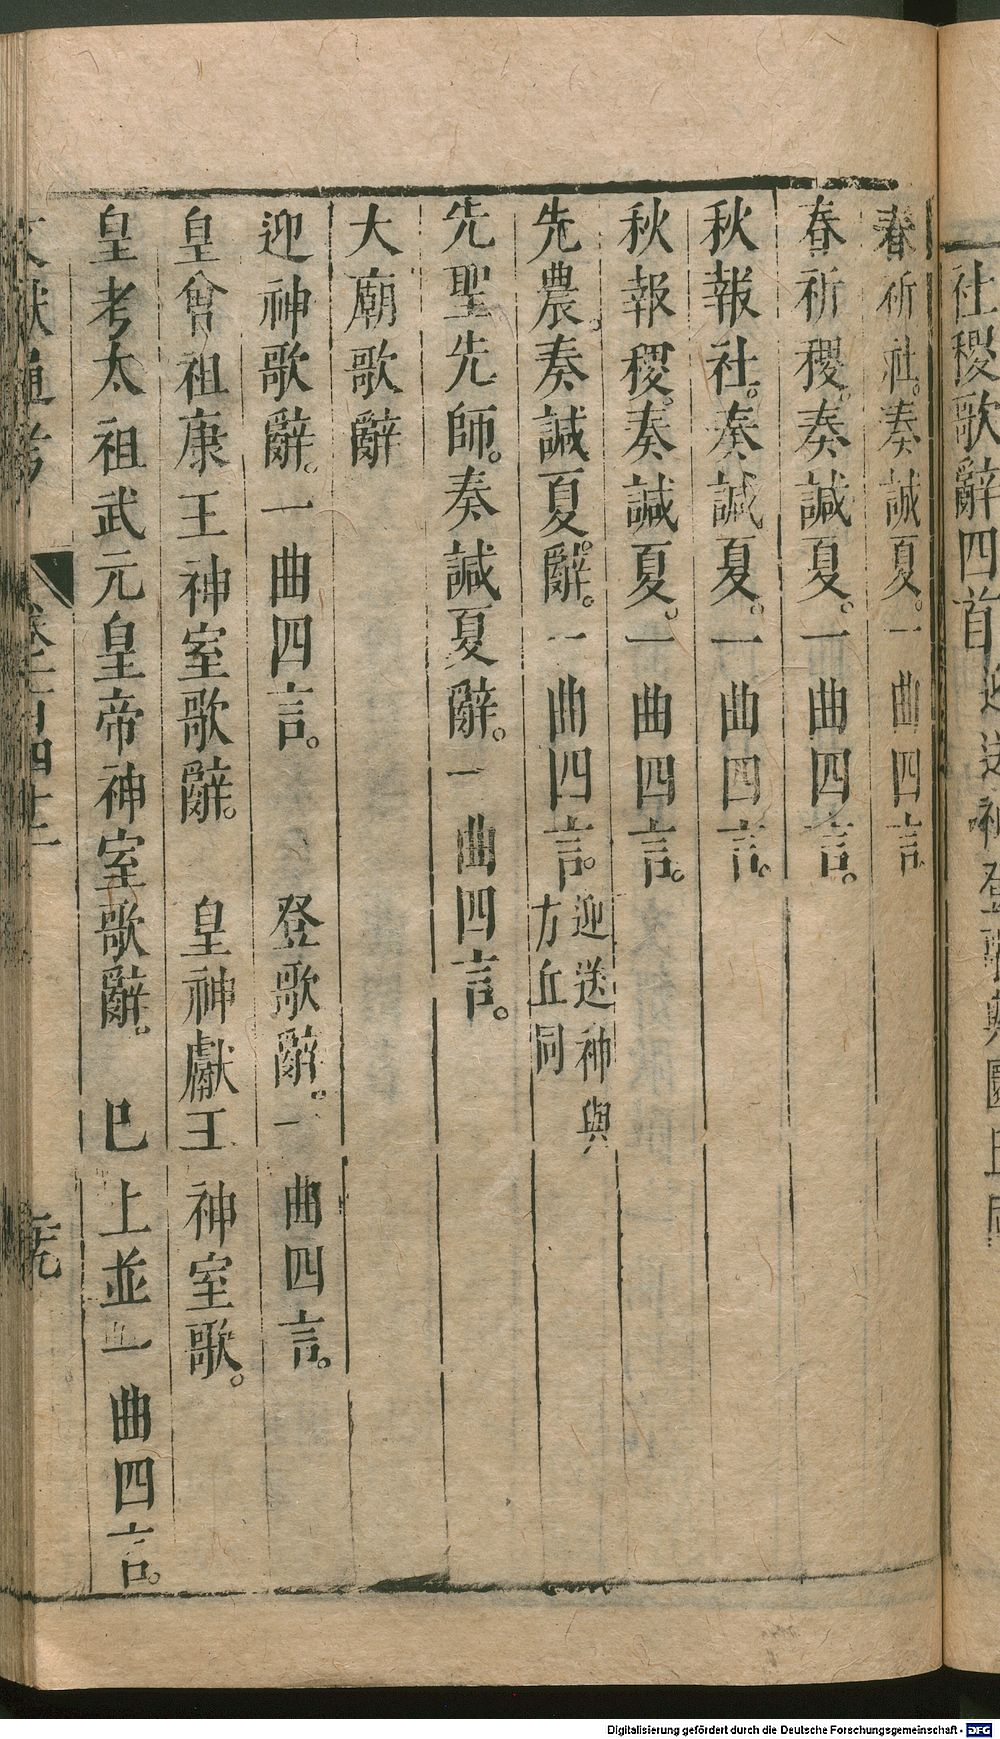 社稷歌辭四首迎送神登歌與圜丘同
春祈社。奏諴夏。一曲四言
春祈稷。奏諴夏。一曲四言。
秋報社。奏諴夏。一曲四言。
秋報稷。奏諴夏。一曲四言。
先農。奏諴夏辭。一曲四言。迎送神與方丘同
先聖先師。奏諴夏辭。一曲四言。
大廟歌辭
迎神歌辭。一曲四言。 登歌辭。一曲四言。
皇曾祖康王神室歌辭。 皇神獻王神室歌。
皇考太祖武元皇帝神室歌辭。 巳上並一曲四言。
文獻通考 卷一百四十二
Digitalisierung gefördert durch die Deutsche Forschungsgemeinschaft - DFG